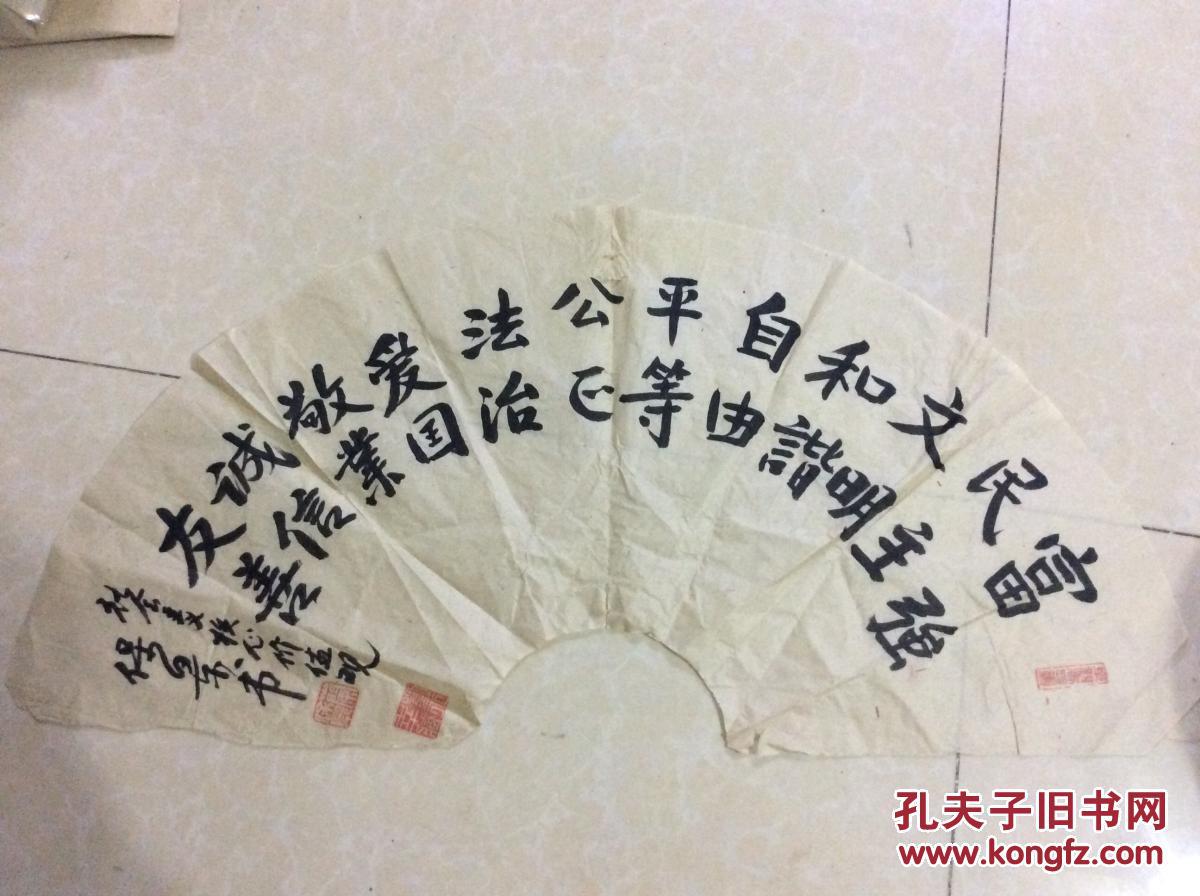 富强
民主
文明
和谐
自由
平等
公正
法治
爱国
敬業
诚信
友善
社会主义核心价值观
孔夫子旧书网
www.kongfz.com